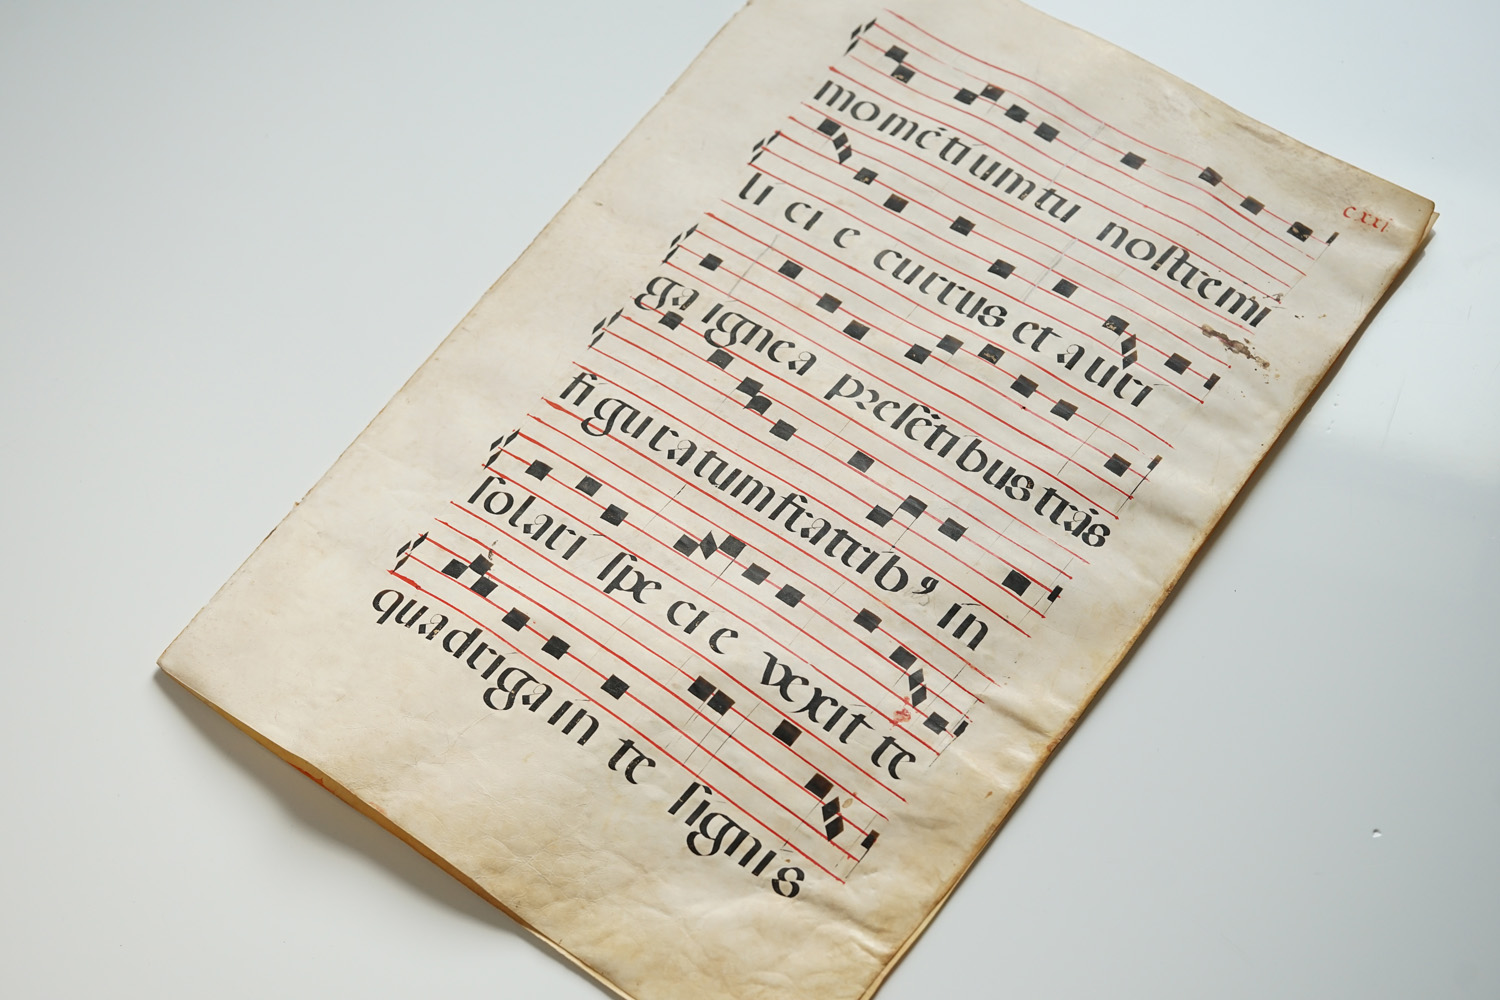 cxxi.
momẽtium tu noſtre mi
li ci e currus et auri
ga ignea preſẽtibus trãs
fi guratum fratrib⁹ in
ſolari ſpe ci e vexit te
quadriga in te ſignis